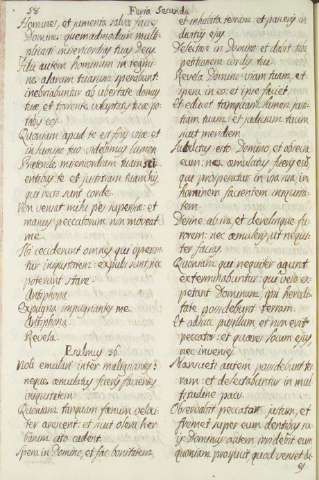 58
Feria Secunda
Homines, et jumenta salva facies
Domine: quemadmodum multi-
plicasti misericordiam tuam Deus.
Filii autem hominum in tegmi-
ne alarum tuarum sperabunt.
inebriabuntur ab ubertate domus
tuæ: et torrente voluptatis tuæ po-
tabis eos.
Quoniam apud te est fons vitæ: et
in lumine tuo videbimus lumen.
Prætende misericordiam tuam sci-
entibus te et justitiam tuam his
qui recto sunt corde.
Non veniat mihi pes superbiæ: et
manus peccatoris non moveat
me.
Ibi ceciderunt omnes qui operan-
tur iniquitatem: expulsi sunt nec
potuerunt stare.
Antiphona
Expugna impugnantes me.
Antiphona.
Revela.
Psalmus 36.
Noli emulari inter malignantes:
neque emulatus fueris facientes
iniquitatem.
Quoniam tanquam fœnum veloci-
ter arescent: et sicut olera her-
barum cito cadent.
Spera in Domino, et fac bonitatem,
et inhabita terram et pasceris in
divitiis ejus.
Delectare in Domino et dabit tibi
petitiones cordis tui.
Revela Domino viam tuam, et
spera in eo: et ipse faciet.
Et educet tamquam lumen justi-
tiam tuam: et judicium tuum
tanquam meridiem
Subditus esto Domino, et ora
eum: nec æmulatus fueris eum
qui prosperatur in via sua, in
hominem facientem iniquita-
tem.
Desine ab ira, et derelinque fu-
rorem: nec æmuleris ut nequi-
ter facias.
Quoniam qui nequiter agunt
exterminabuntur: qui vero ex-
pectant Dominum, ipsi heredi-
tate possidebunt terram.
Et adhuc pusillum et non erit
peccator: et quæres locum ejus
nec invenies.
Mansueti autem possidebunt ter-
ram: et delectabuntur in mul-
titudine pacis.
Observabit peccator justum, et
fremet super eum dentibus suis.
Dominus autem irridebit eum
quoniam prospicit quod veniet di-
es